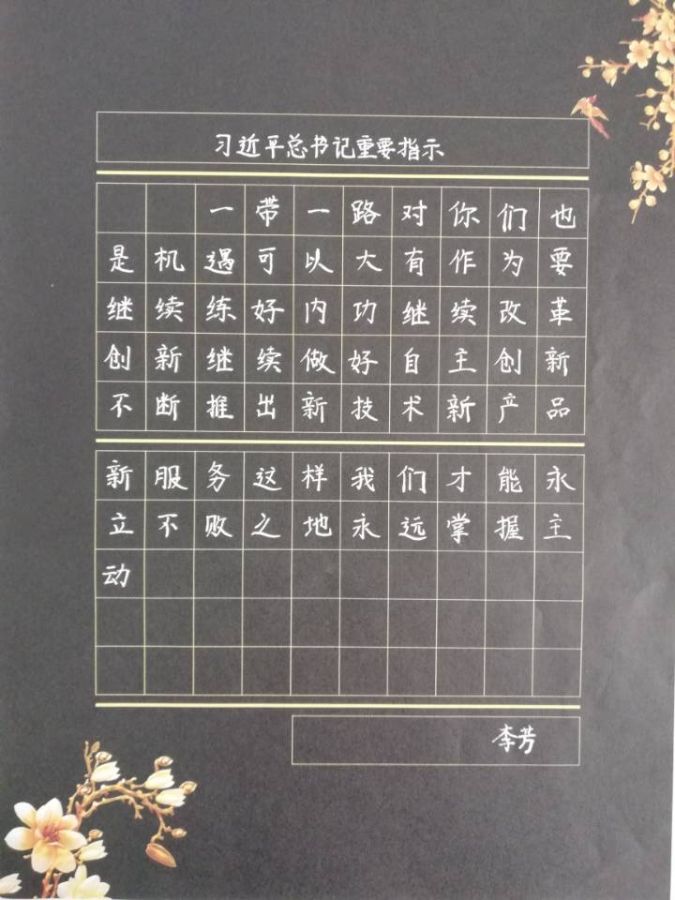 习近平总书记重要指示
一带一路对你们也
是机遇可以大有作为要
继续练好内功继续改革
创新继续做好自主创新
不断推出新技术新产品
新服务这样我们才能永
立不败之地永远掌握主
动
李芳